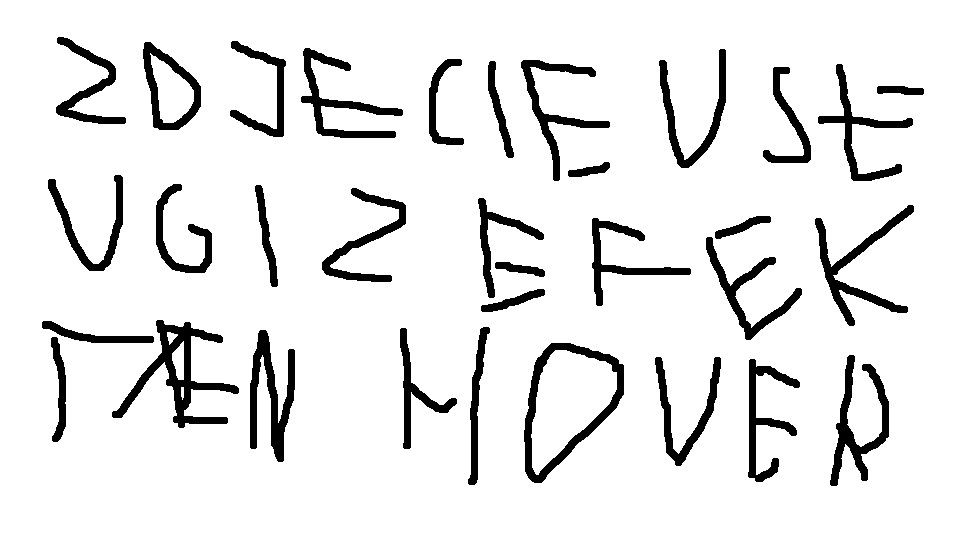 ZDJECIE USE
UGIZ EFEK
TEN HOVER